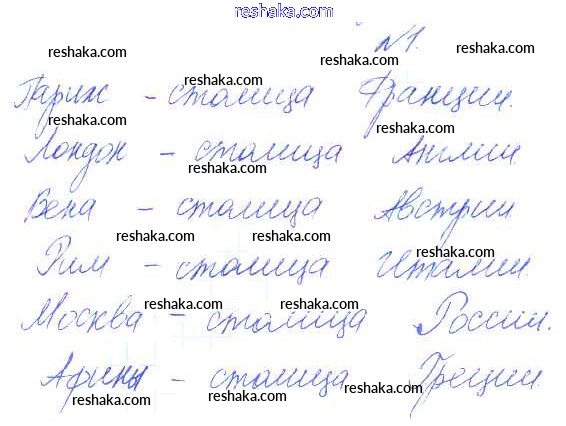 reshaka.com
№1.
reshaka.com reshaka.com
reshaka.com
Париж - столица Франции.
reshaka.com reshaka.com
Лондон - столица Англии.
reshaka.com reshaka.com
Вена - столица Австрии
reshaka.com reshaka.com
reshaka.com
Рим - столица Италии.
reshaka.com reshaka.com
Москва - столица России.
reshaka.com
Афины - столица Греции.
reshaka.com reshaka.com